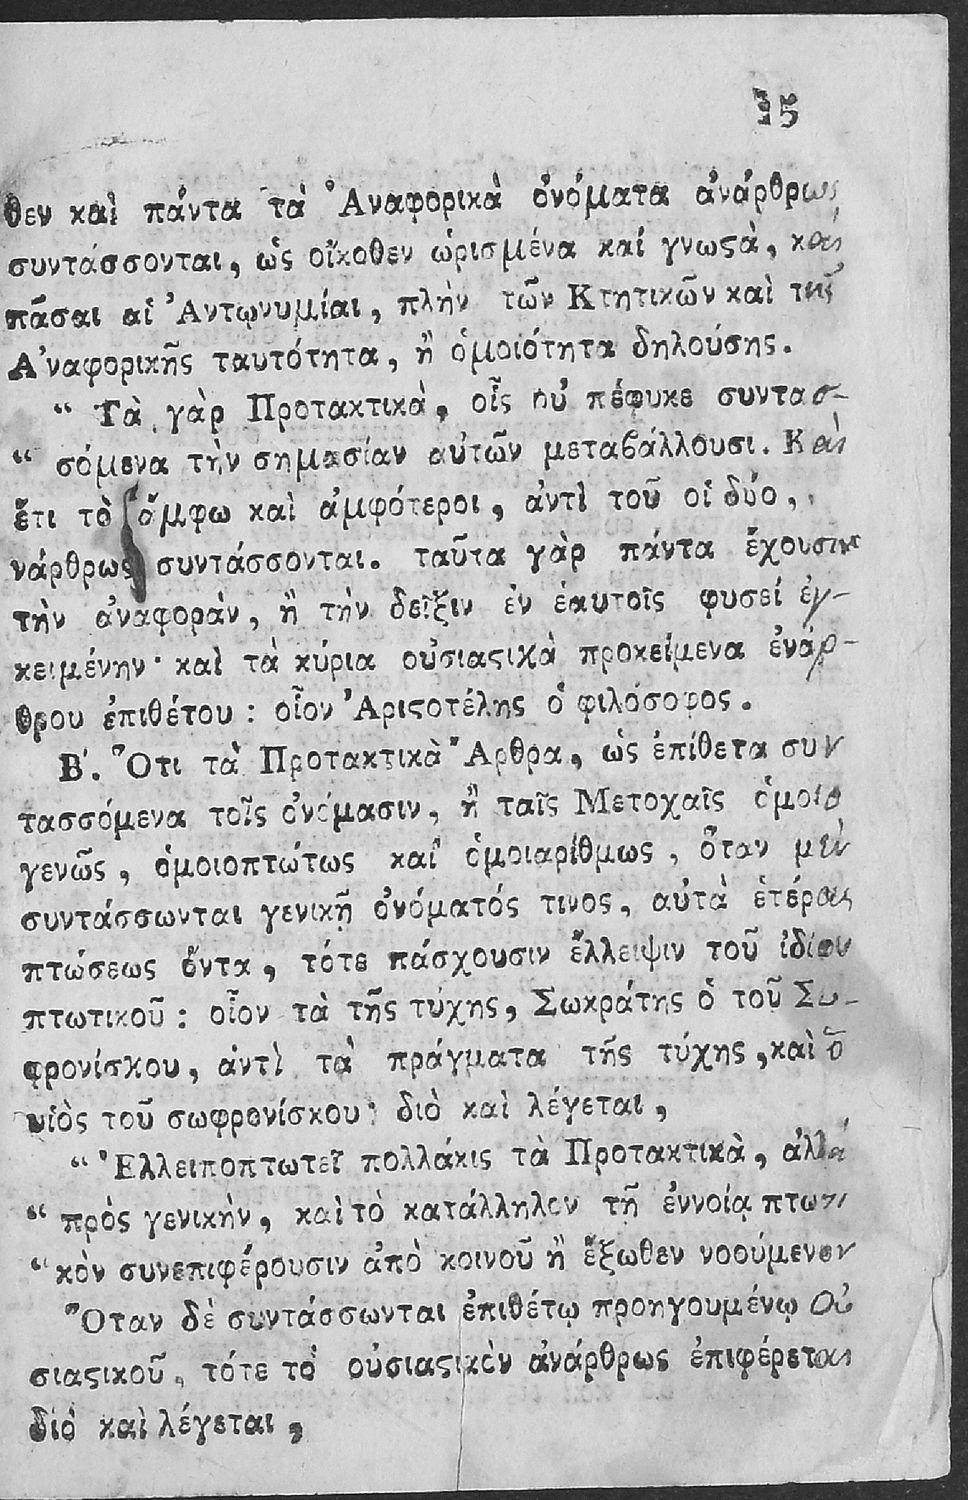 15
θεν καὶ πάντα τὰ Ἀναφορικὰ ὀνόματα ἀνάρθρως
συντάσσονται, ὡς οἴκοθεν ὡρισμένα καί γνωϛὰ, καὶ
πᾶσαι αἱ Ἀντωνυμίαι, πλὴν τῶν Κτητικῶν καὶ τῆς
Ἀναφορικῆς ταυτότητα, ἢ ὁμοιότητα δηλούσης.
“ Τὰ γὰρ Προτακτικὰ, οἷς οὐ πέφυκε συντασ-
“ σόμενα τὴν σημασίαν αὐτῶν μεταβάλλουσι. Καὶ
ἔτι τὸ ἄμφω καὶ ἀμφότεροι, ἀντὶ τοῦ οἱ δύο,
νάρθρως συντάσσονται. ταῦτα γὰρ πάντα ἔχουσιν
τὴν ἀναφορὰν, ἢ τὴν δεῖξιν ἐν ἑαυτοῖς φυσεί ἐγ-
κειμένην· καὶ τὰ κύρια οὐσιαϛικὰ προκείμενα ἐνάρ-
θρου ἐπιθέτου : οἷον Ἀριϛοτέλης ὁ φιλόσοφος.
Β΄. Ὅτι τὰ Προτακτικὰ Ἄρθρα, ὡς ἐπίθετα συν
τασσόμενα τοῖς ὀνόμασιν, ἢ ταῖς Μετοχαῖς ὁμοιο
γενῶς, ὁμοιοπτώτως καὶ ὁμοιαρίθμως, ὅταν μὲν
συντάσσωνται γενικῇ ὀνόματός τινος, αὐτὰ ἑτέρας
πτώσεως ὄντα, τότε πάσχουσιν ἔλλειψιν τοῦ ἰδίου
πτωτικοῦ : οἷον τὰ τῆς τύχης, Σωκράτης ὁ τοῦ Σω-
φρονίσκου, ἀντὶ τὰ πράγματα τῆς τύχης, καὶ ὁ
υἱὸς τοῦ σωφρονίσκου· διὸ καὶ λέγεται,
“ Ἐλλειποπτωτεῖ πολλάκις τὰ Προτακτικὰ, ἀλλὰ
“ πρὸς γενικὴν, καὶ τὸ κατάλληλον τῇ ἐννοίᾳ πτωτι
“ κὸν συνεπιφέρουσιν ἀπὸ κοινοῦ ἢ ἔξωθεν νοούμενον
Ὅταν δὲ συντάσσωνται ἐπιθέτῳ προηγουμένῳ Οὐ
σιαϛικοῦ, τότε τὸ οὐσιαϛικὸν ἀνάρθρως ἐπιφέρεται
διὸ καὶ λέγεται,